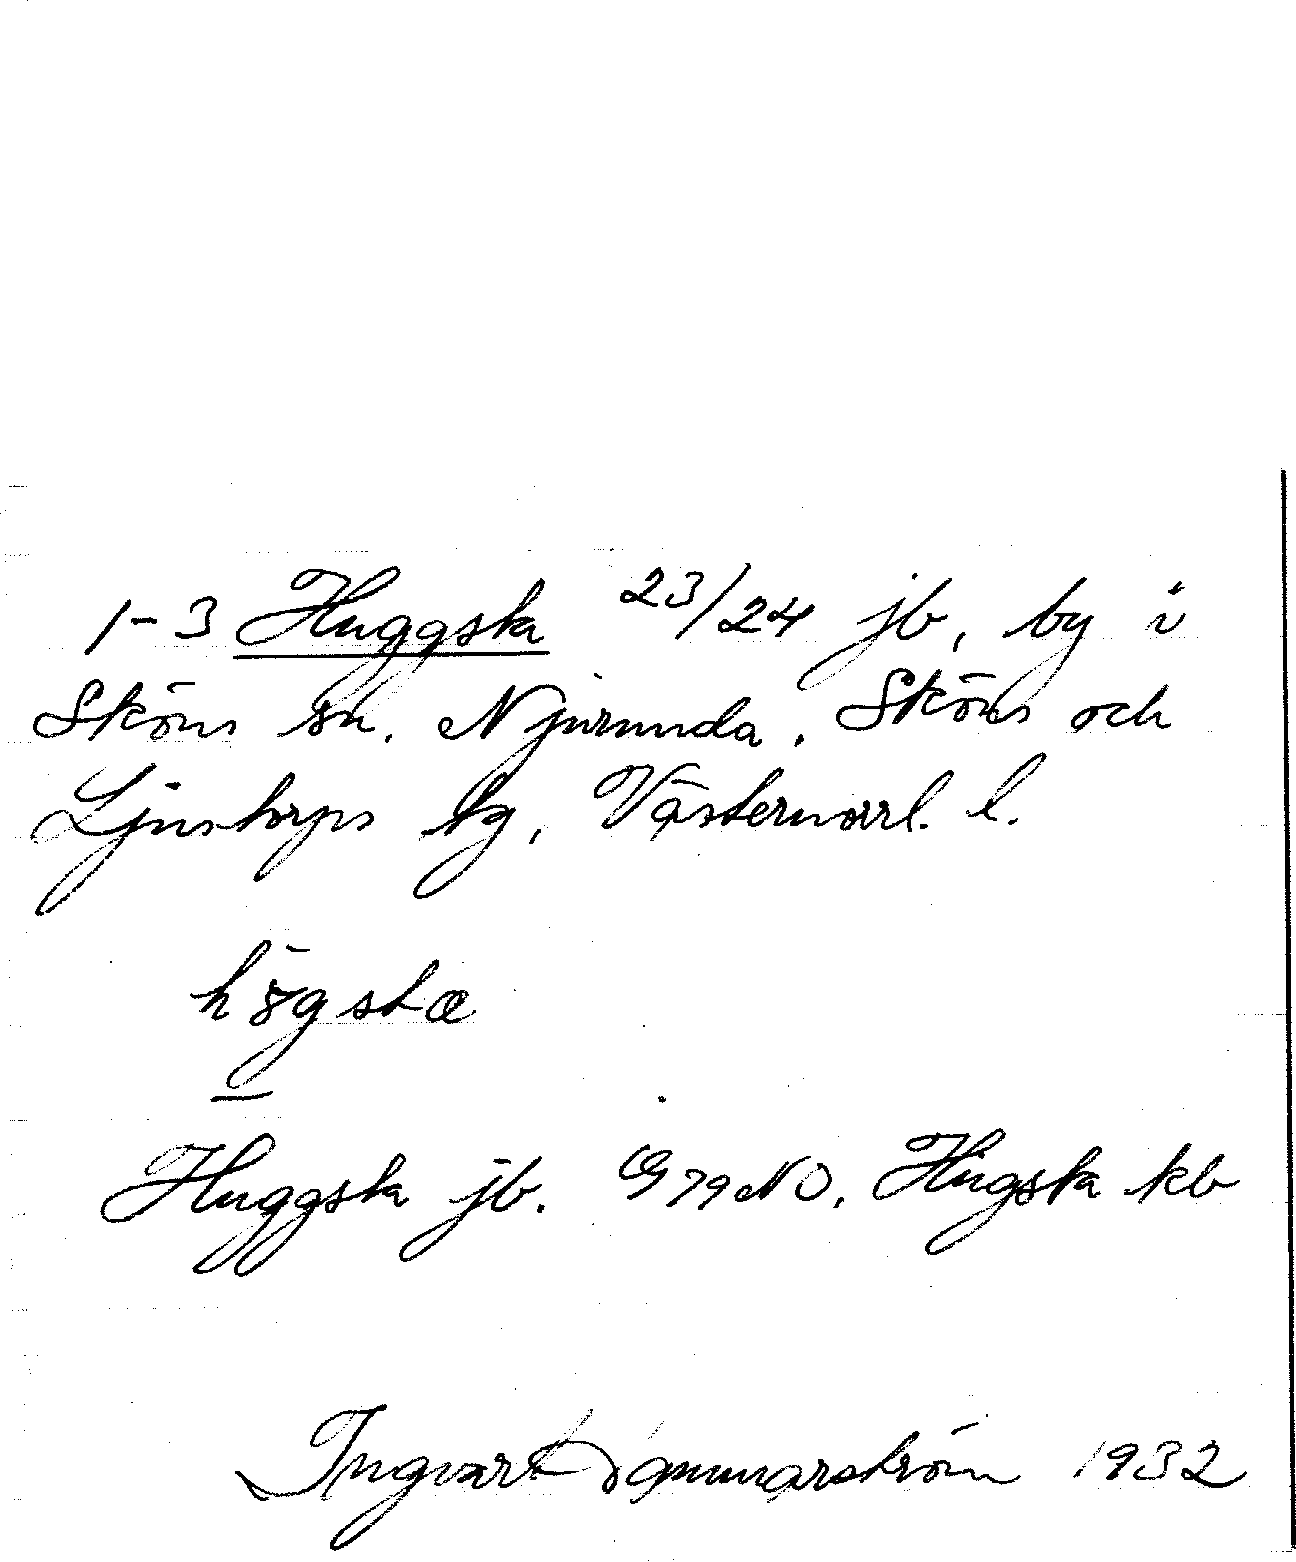 1-3 Huggsta 23/24 jb, by i
Sköns sn. Njurunda, Sköns och
Ljustorps tg, Västernorrl. l.
högsta
Huggsta jb. G79NO, Hugsta kb
Ingvart 1932